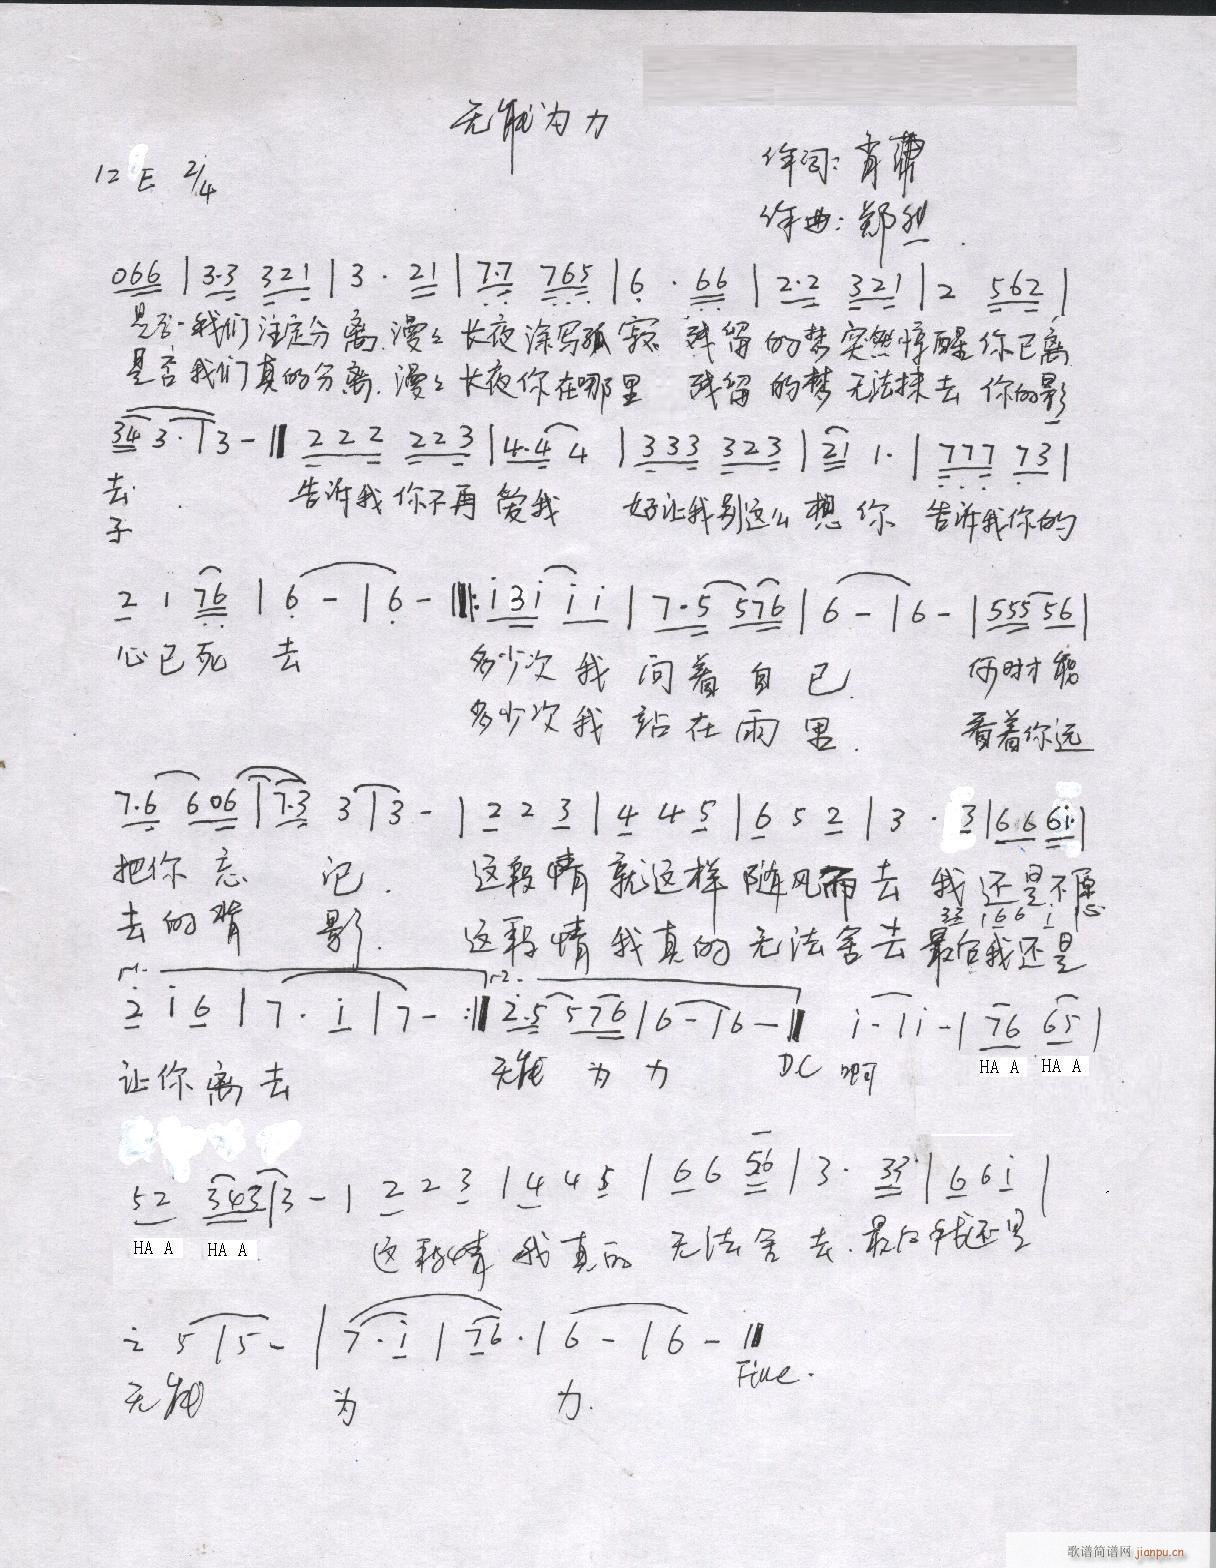 无能为力
12 E 2/4
作词: 肖
作曲: 郑
066 | 3·3 321 | 3 · 21 | 7·7 765 | 6 · 66 | 2·2 321 | 2 562 |
是否我们注定分离 漫々长夜涂写孤寂 残留的梦突然惊醒 你已离
是否我们真的分离 漫々长夜你在哪里 残留的梦无法抹去 你的影
34 3· | 3 - || 222 223 | 4·4 4 | 333 323 | 21 1· | 777 73 |
去 告诉我你不再爱我 好让我别这么想你 告诉我你的
子
2 1 76 | 6 - | 6 - ||: i3i i i | 7·5 576 | 6 - | 6 - | 555 56 |
心已死 去 多少次我 问着自己 何时才能
多少次我 站在雨里 看着你远
7·6 606 | 7·3 3 | 3 - | 2 2 3 | 4 4 5 | 6 5 2 | 3 · 3 | 66 6i· |
把你忘 记 这段情就这样随风而去 我还是不愿
33 166 i
去的背 影 这段情我真的无法舍去 最后我还是
1. 2.
2 i 6 | 7 · i | 7 - :|| 2·5 576 | 6 - | 6 - || i - | i - | 76 65 |
让你离去 无能为力 DC 啊 HA A HA A
52 343 | 3 - | 2 2 3 | 4 4 5 | 6 6 56 | 3· 33 | 6 6 i |
HA A HA A 这段情 我真的 无法舍去 最后我还是
i 5 | 5 - | 7 · i | 76 · | 6 - | 6 - ||
无能 为 力 Fine.
歌谱简谱网 jianpu.cn